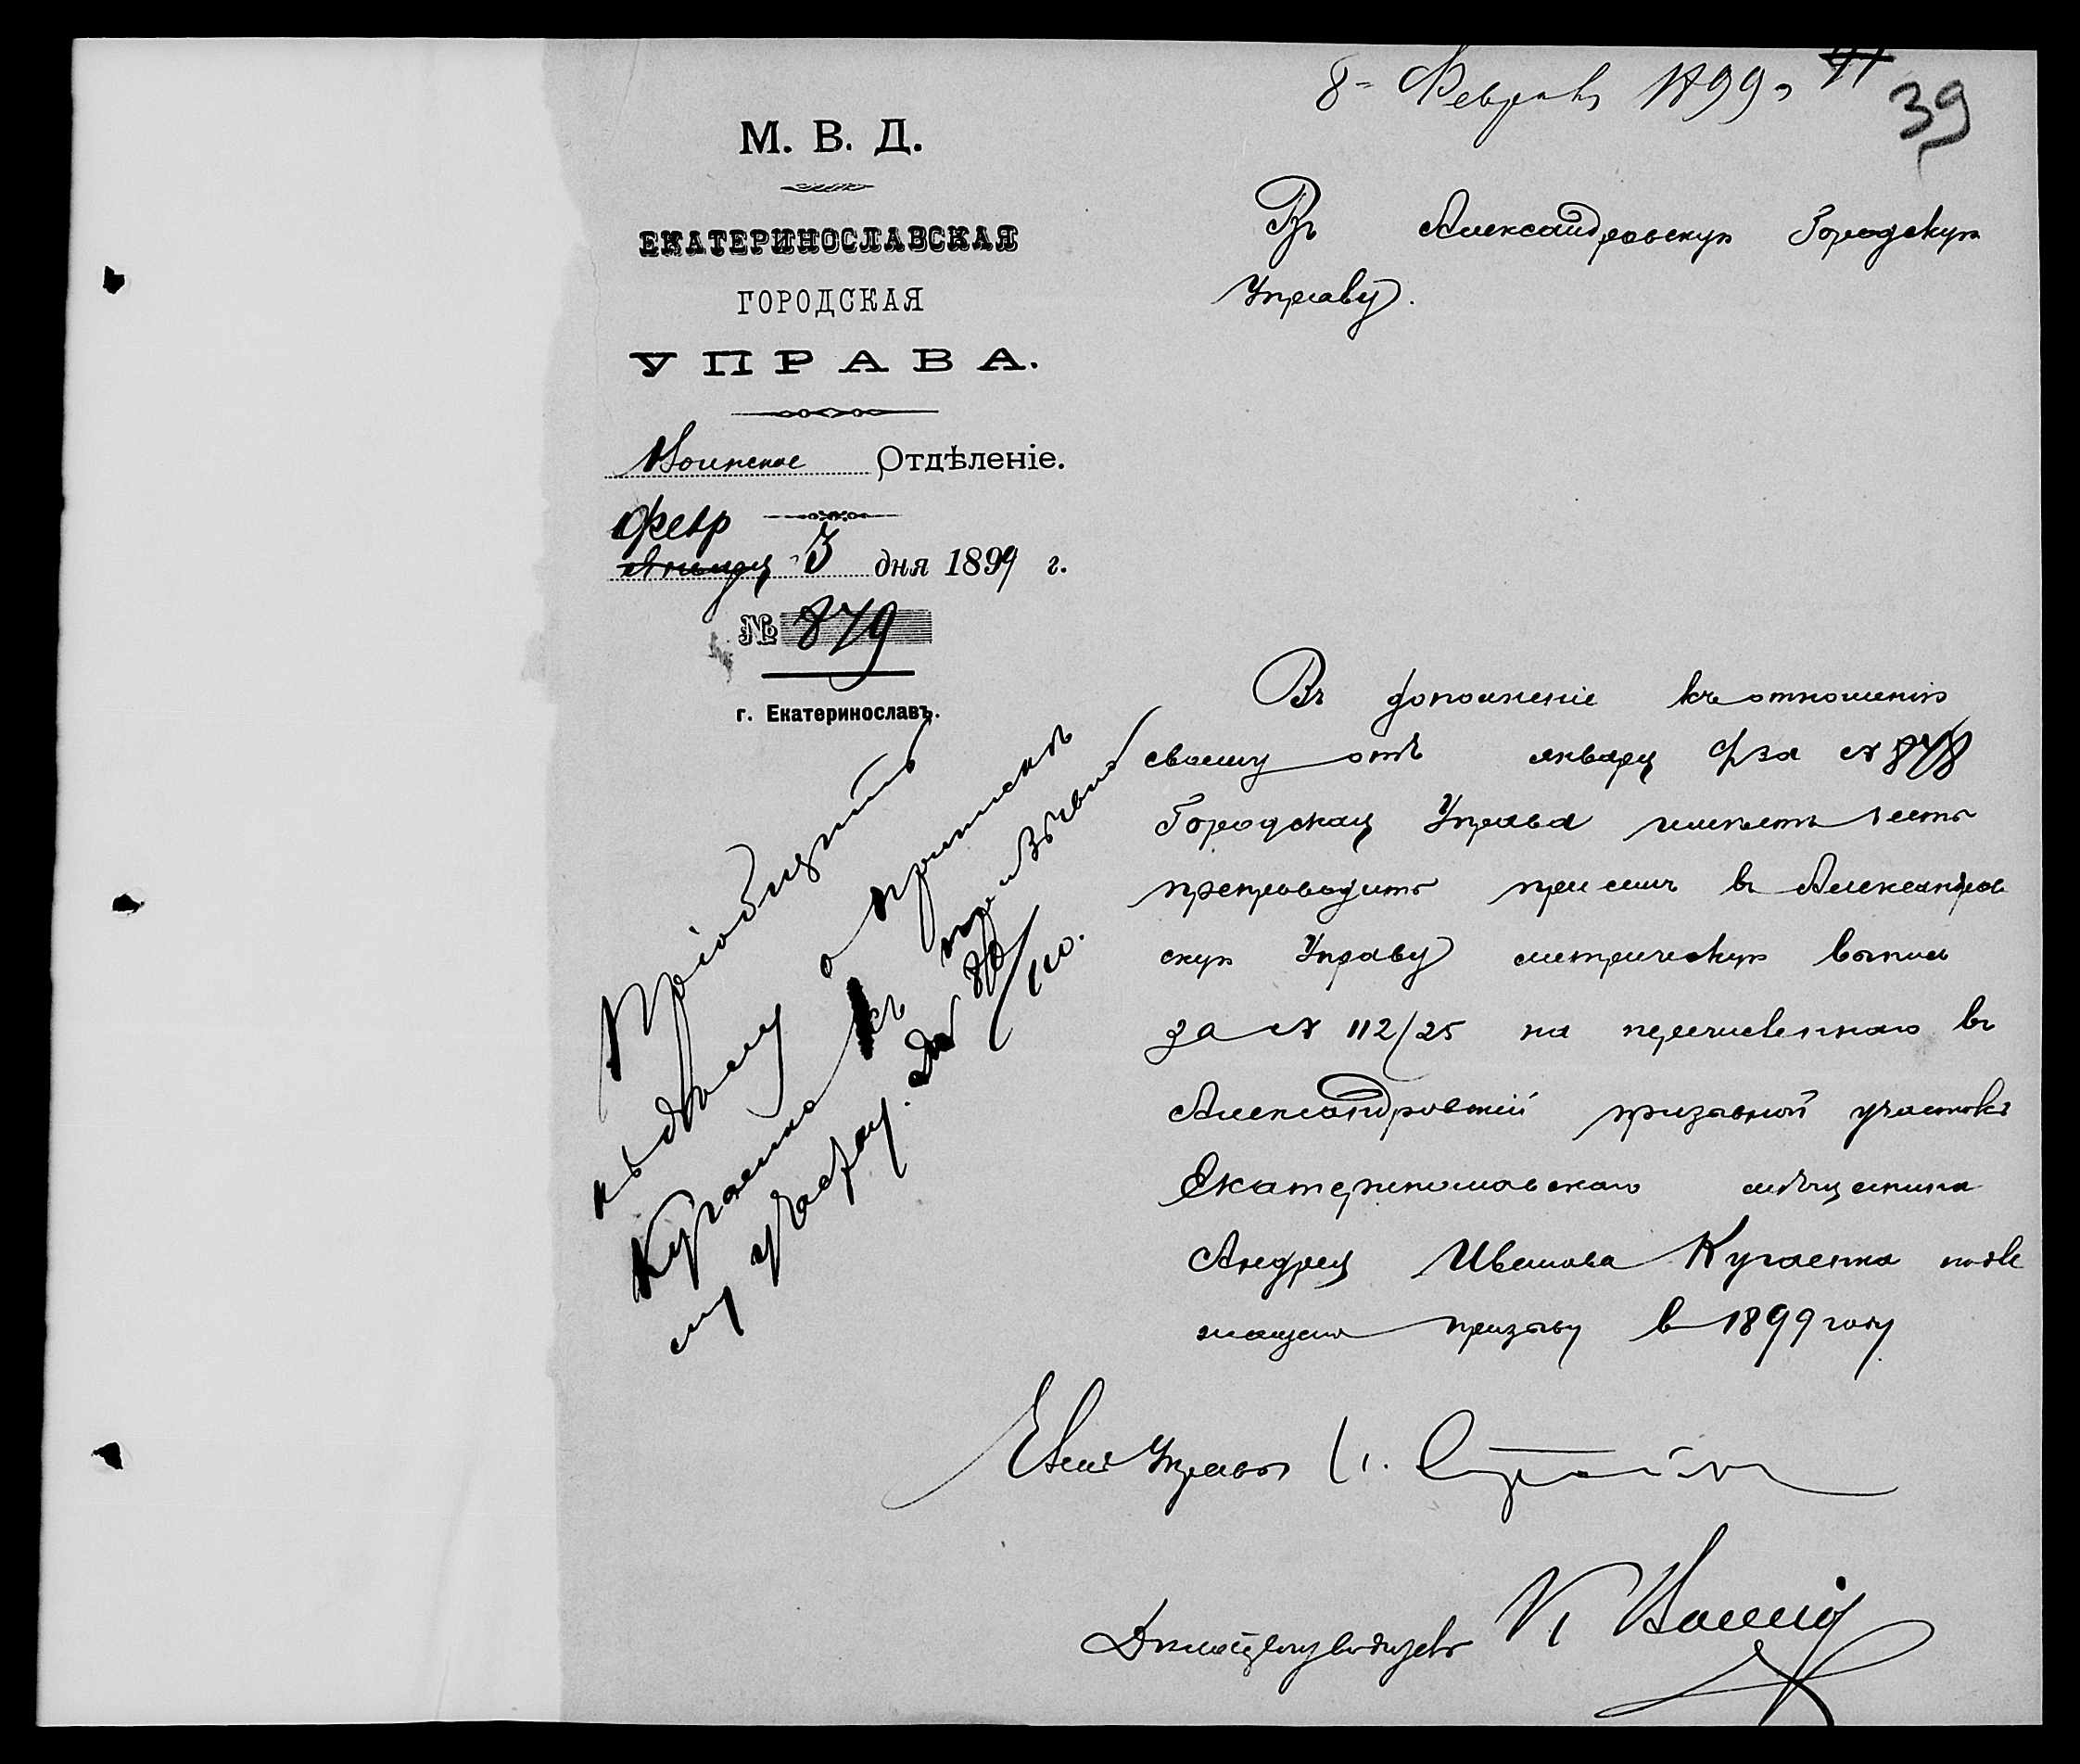 8 Февраля 1899 г.
39
М. В. Д.
ЕКАТЕРИНОСЛАВСКАЯ
ГОРОДСКАЯ
УПРАВА.
Воинское Отдѣленіе.
Февр
января 3 дня 1899 г.
№ 879
г. Екатеринославъ.
Въ Александровскую Городскую
Управу.
Въ дополненіе къ отношенію
своему отъ января с/г за № 878
Городская Управа имѣетъ честь
препроводить при семъ въ Александров
скую Управу метрическую выпись
за № 112/25 на перечисленнаго въ
Александровскій призывной участокъ
Екатеринославскаго мѣщанина
Андрея Иванова Кугаенко подле
жащаго призыву в 1899 году
Пріобщить
къ дѣлу о припискѣ
Кугаенко къ призывно
му участку.
Членъ Управы
Дѣлопроизводитель